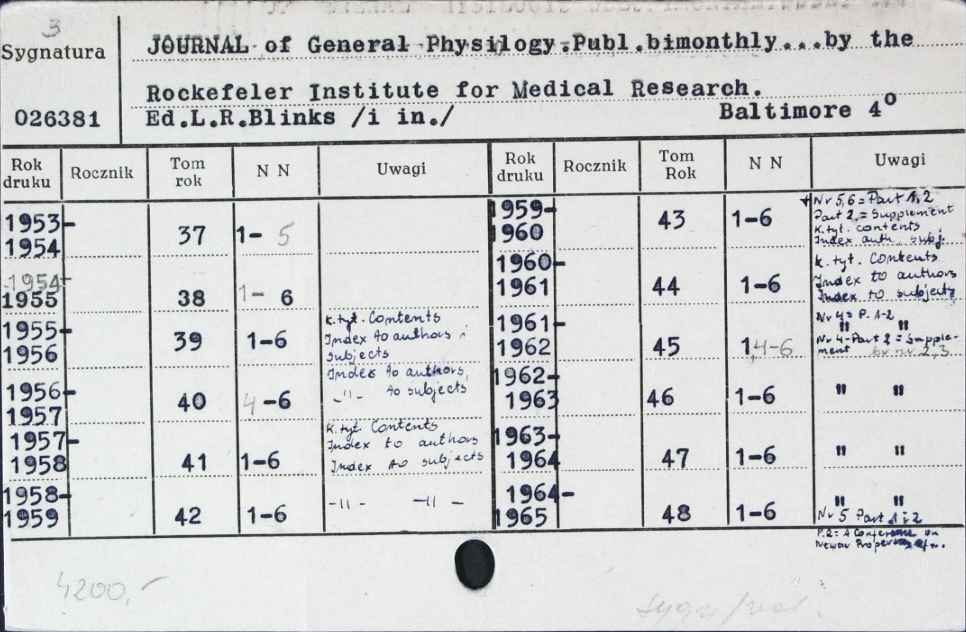 3
Sygnatura
026381
JOURNAL of General Physilogy.Publ.bimonthly...by the
Rockefeler Institute for Medical Research.
Ed.L.R.Blinks /i in./ Baltimore 4°
Rok druku Rocznik Tom rok N N Uwagi
1953-1954 37 1- 5
1954-1955 38 1- 6
1955-1956 39 1-6 k.tyt. Contents
Index to authors i
subjects
1956-1957 40 4-6 Index to authors,
-"- to subjects
1957-1958 41 1-6 k.tyt. Contents
Index to authors
Index to subjects
1958-1959 42 1-6 -"- -"-
Rok druku Rocznik Tom Rok N N Uwagi
1959-1960 43 1-6 + Nr 5,6 = Part 1,2
Part 2 = Supplement
k.tyt. contents
Index auth. subj.
1960-1961 44 1-6 k.tyt. Contents
Index to authors
Index to subjects
1961-1962 45 1,4-6 Nr 4 = P. 1-2
" "
Nr 4-Part 2 = Supple-
ment br nr 2,3
1962-1963 46 1-6 " "
1963-1964 47 1-6 " "
1964-1965 48 1-6 " "
Nr 5 Part 1 i 2
P.2 = A Conference on
Newer Properties
4200,-